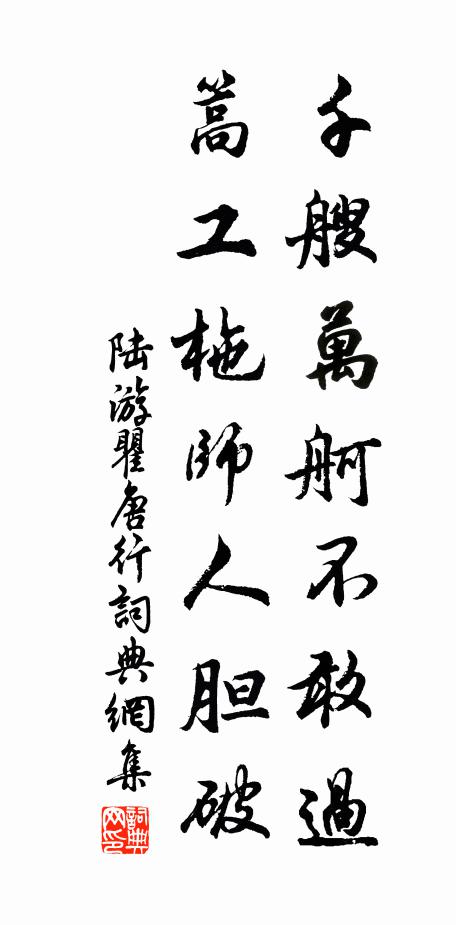 千艘萬舸不敢過
篙工柂師人胆破
陆游瞿唐行詞典網集
詞典网印